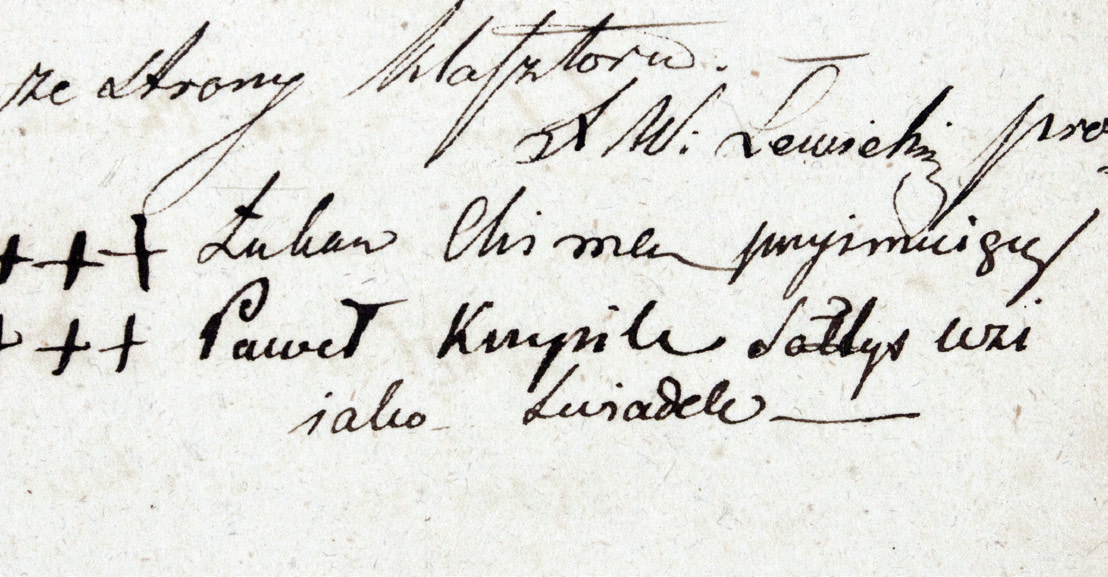 ze strony klasztoru.
X W: Lewicki pro
+++ Łukasz Chi mea przyimuiący
+++ Paweł Krupik Sołtys wzi
iako Swiadek